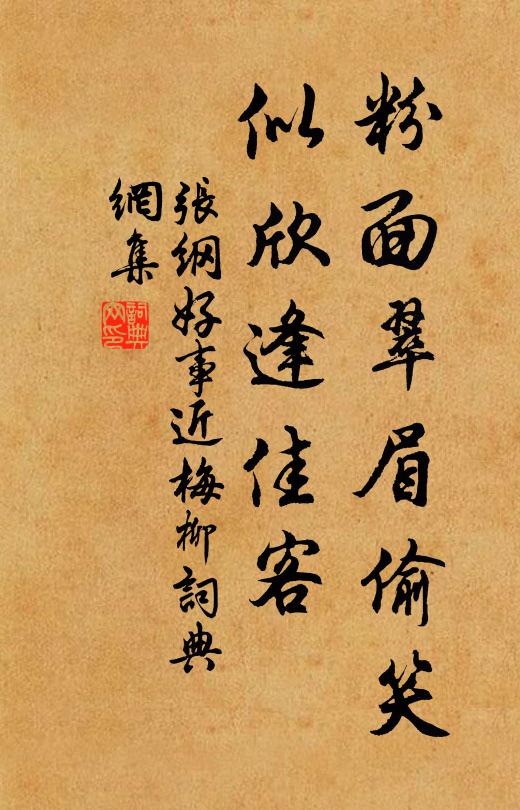 粉面翠眉偷笑
似欣逢佳客
張綱好事近梅柳詞典
網集
詞典
网印